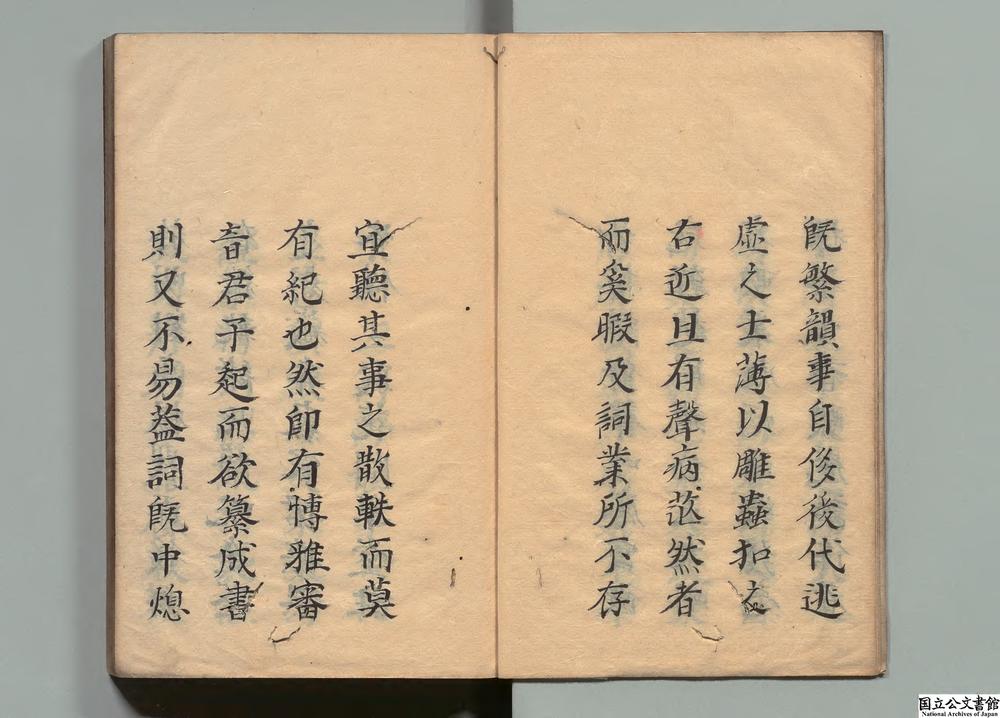 既繁韻事自侈後代逃
虛之士薄以雕蟲扣之
右近且有聲病茫然者
而奚暇及詞業所不存
宜聽其事之散軼而莫
有紀也然卽有愽雅審
音君子起而欲纂成書
則又不易葢詞既中熄
国立公文書館
National Archives of Japan